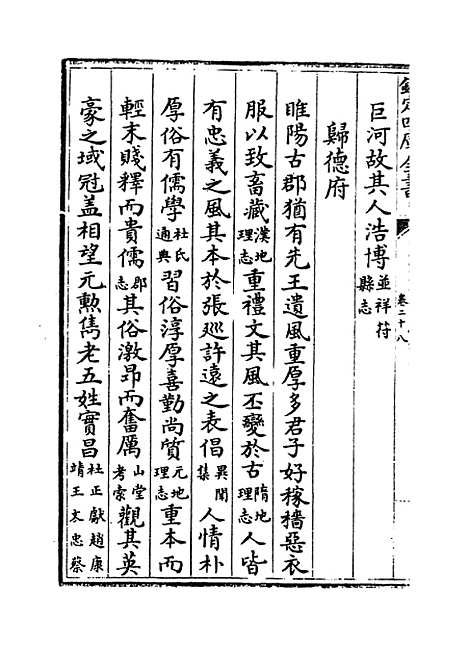 欽定四庫全書
卷二十八
巨河故其人浩博並祥符縣志
歸德府
睢陽古郡猶有先王遺風重厚多君子好稼穡惡衣
服以致畜藏漢地理志重禮文其風丕變於古隋地理志人皆
有忠義之風其本於張巡許遠之表倡異聞集人情朴
厚俗有儒學杜氏通典習俗淳厚喜勤尚質元地理志重本而
輕末賤釋而貴儒郡志其俗激昂而奮厲山堂考索觀其英
豪之域冠盖相望元勲雋老五姓實昌杜正獻趙康靖王文忠蔡